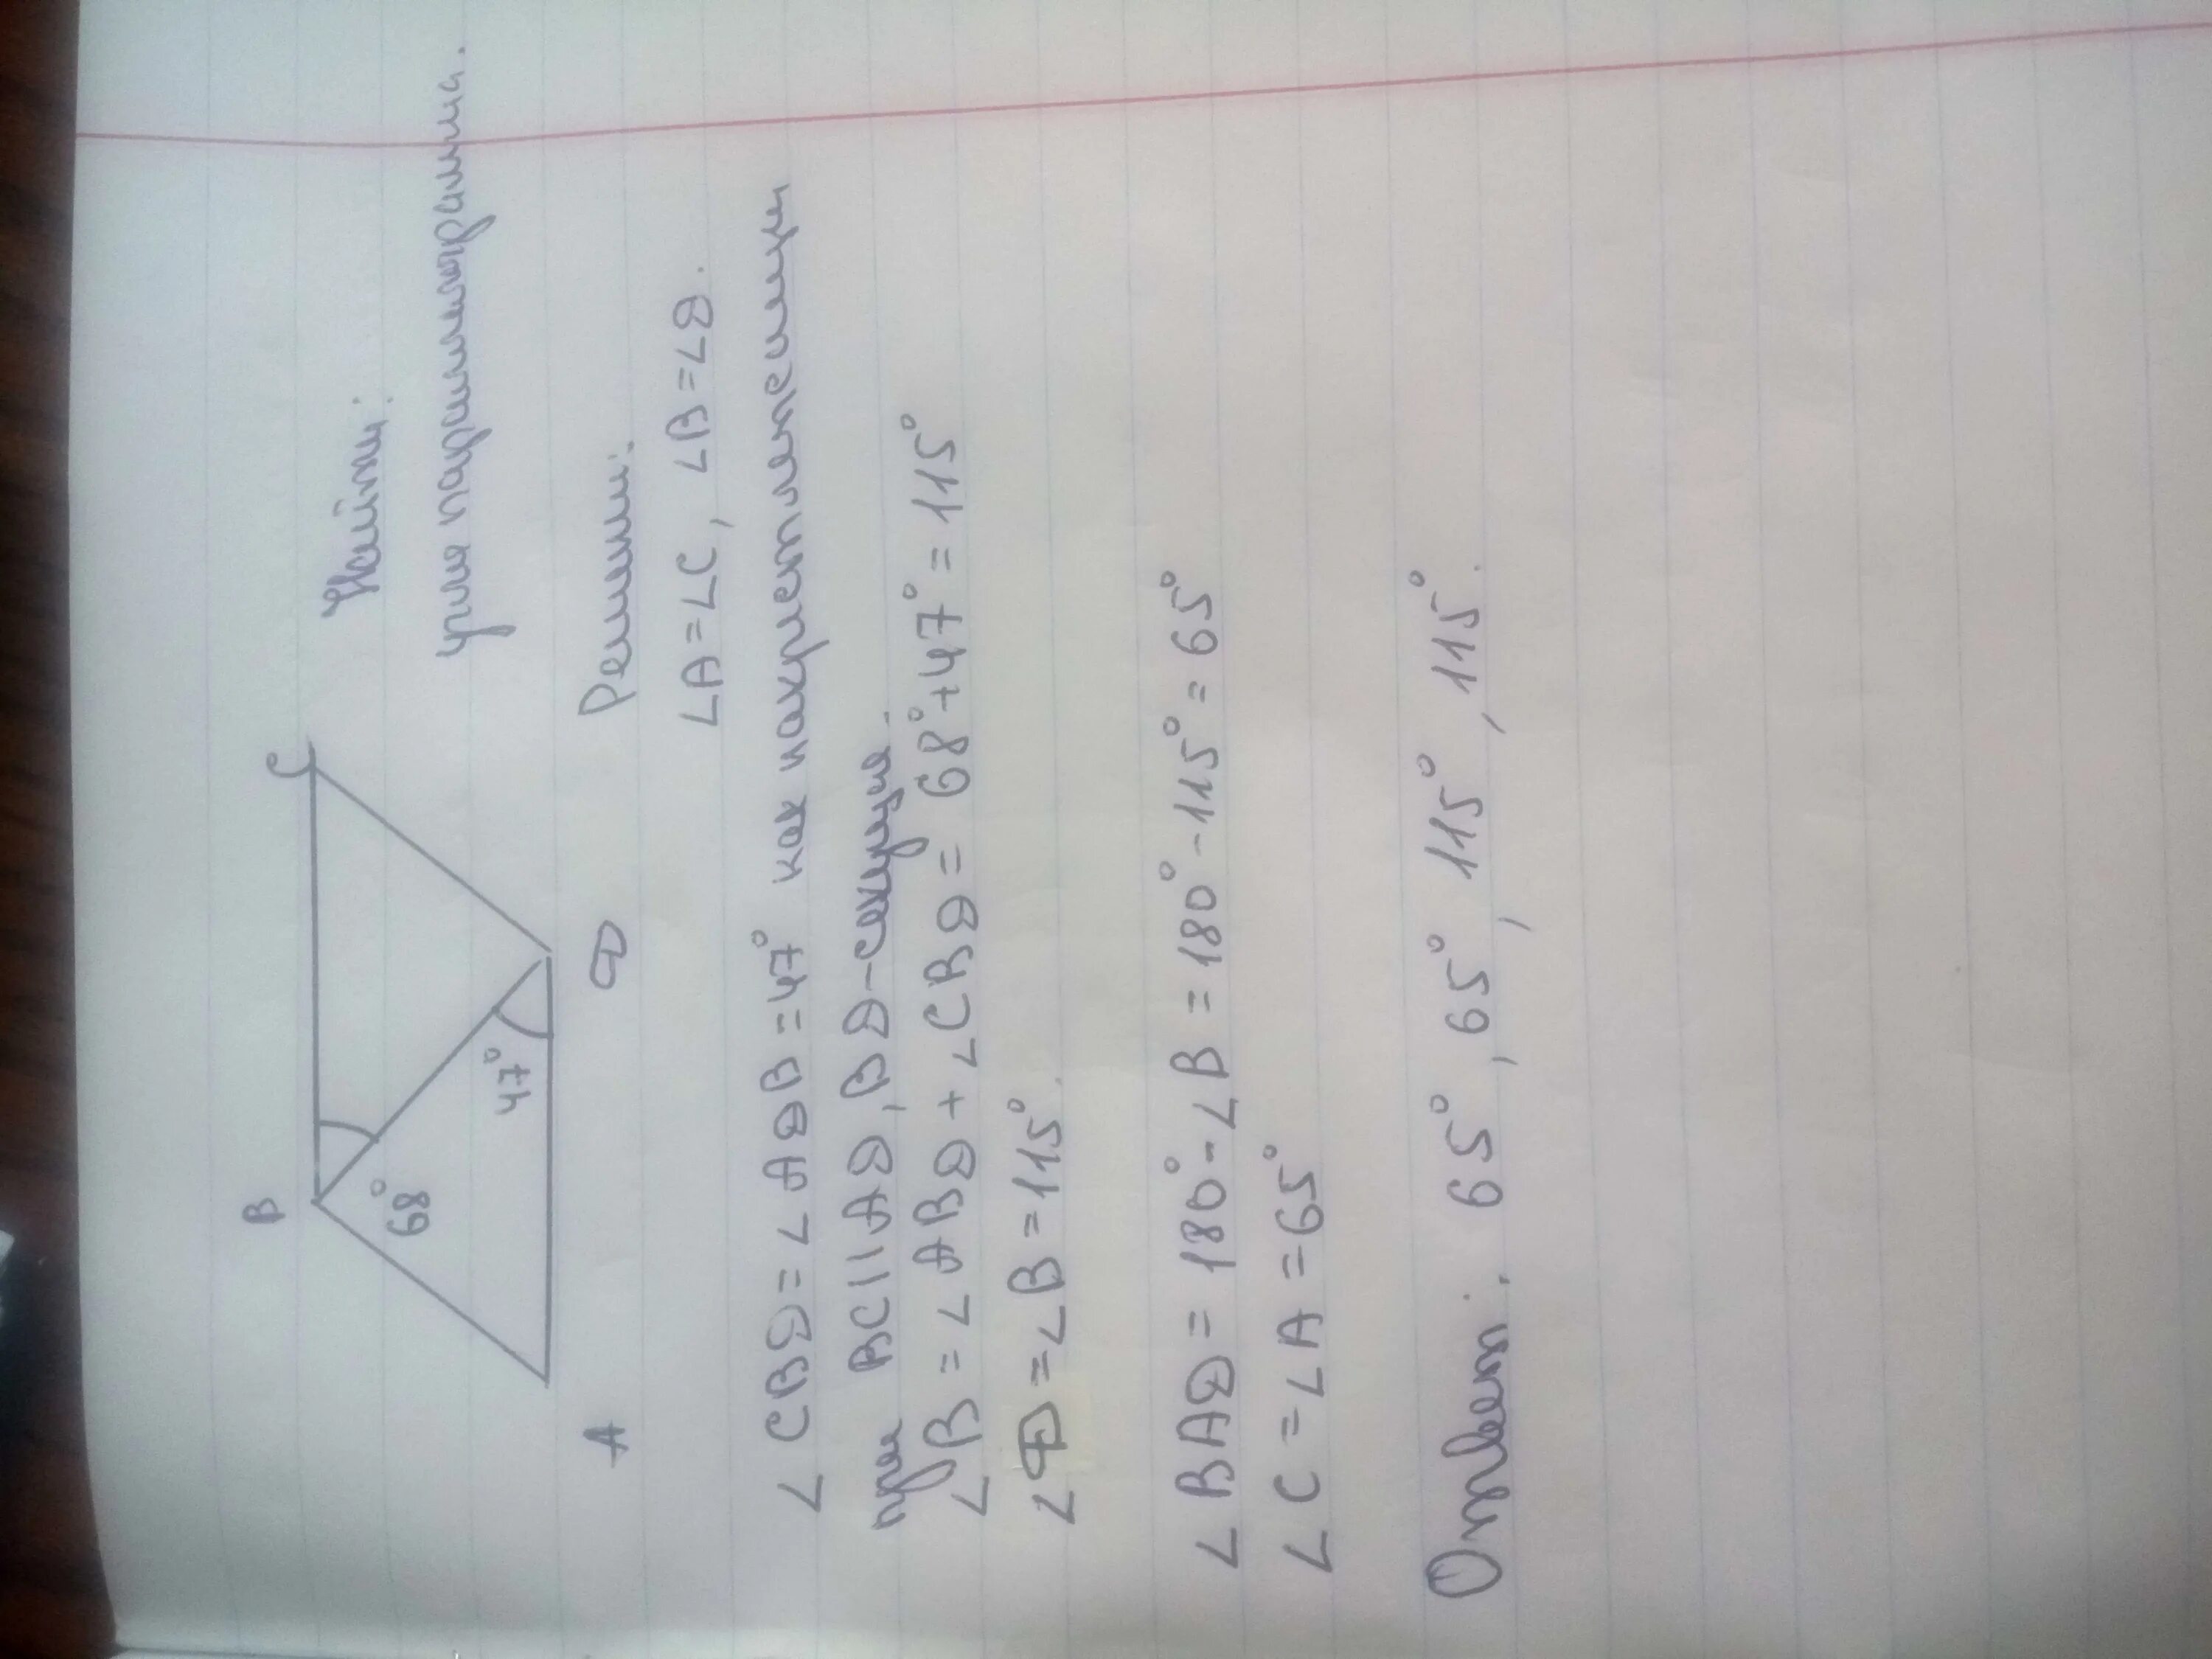 B
C
68°
47°
A
D
Найти:
углы параллелограмма.
Решение:
∠A=∠C, ∠B=∠D.
∠CBD=∠ADB=47° как накрестлежащие
при BC||AD, BD-секущая.
∠B=∠ABD+∠CBD=68°+47°=115°
∠D=∠B=115°.
∠BAD=180°-∠B=180°-115°=65°
∠C=∠A=65°
Ответ: 65°, 65°, 115°, 115°.